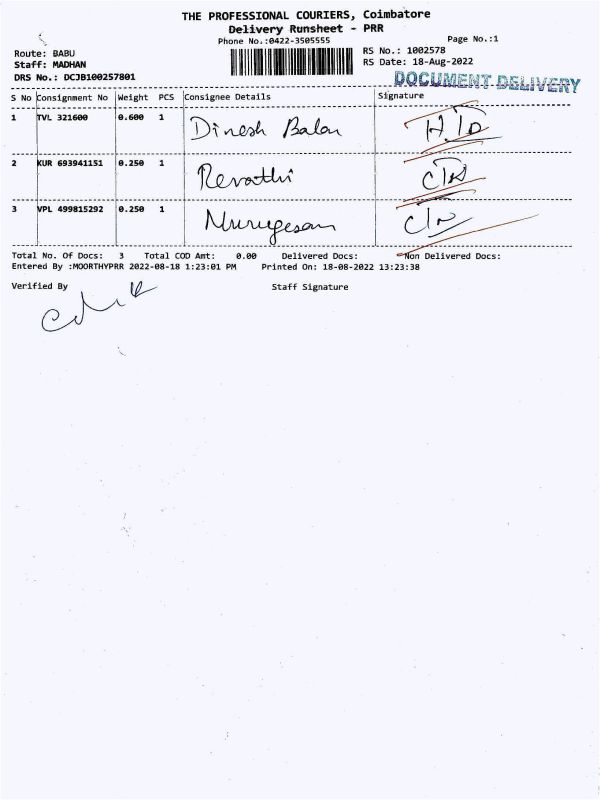 THE PROFESSIONAL COURIERS, Coimbatore
Delivery Runsheet - PRR
Phone No.:0422-3505555 Page No.:1
Route: BABU RS No.: 1002578
Staff: MADHAN RS Date: 18-Aug-2022
DRS No.: DCJB100257801 DOCUMENT DELIVERY
S No Consignment No Weight PCS Consignee Details Signature
1 TVL 321600 0.600 1 Dinesh Balan
2 KUR 693941151 0.250 1 Revathi
3 VPL 499815292 0.250 1 Murugesan
Total No. Of Docs: 3 Total COD Amt: 0.00 Delivered Docs: Non Delivered Docs:
Entered By :MOORTHYPRR 2022-08-18 1:23:01 PM Printed On: 18-08-2022 13:23:38
Verified By Staff Signature